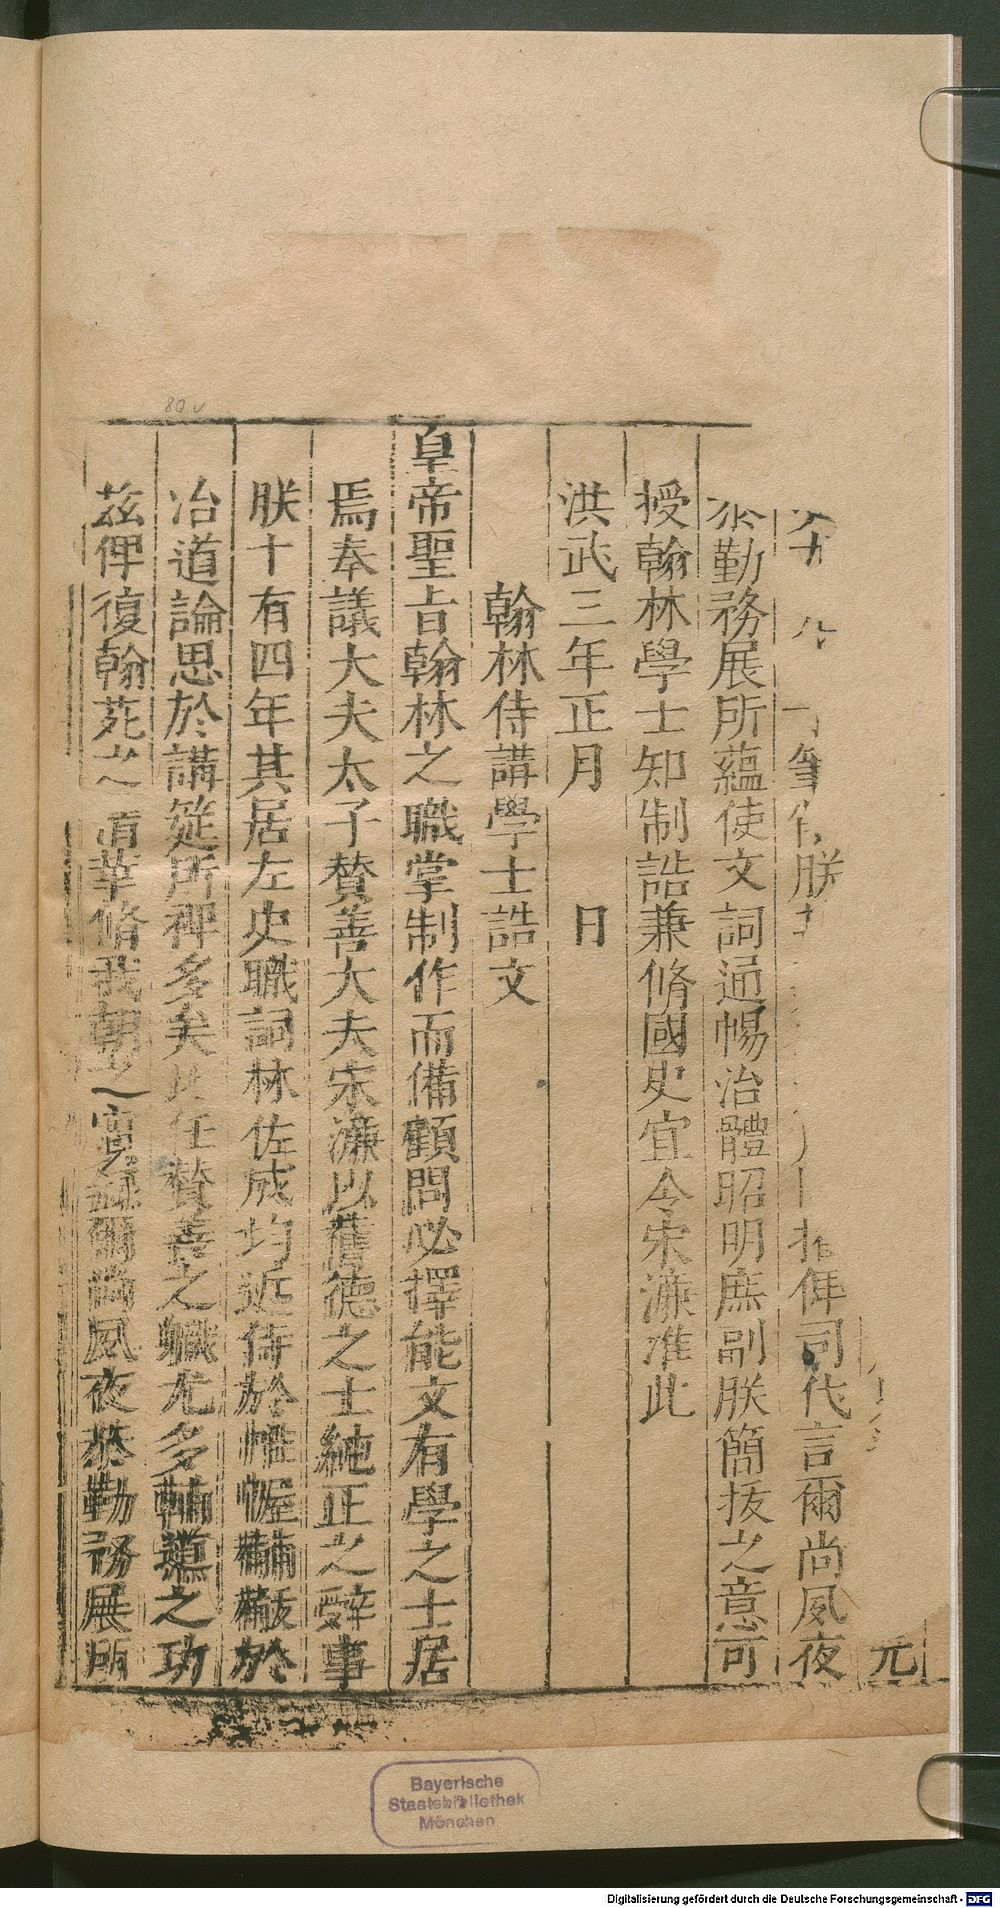 元
筆 朕 俾司代言爾尚夙夜
恭勤務展所蘊使文詞通暢治體昭明庶副朕簡拔之意可
授翰林學士知制誥兼脩國史宜令宋濂准此
洪武三年正月 日
翰林侍講學士誥文
皇帝聖旨翰林之職掌制作而備顧問必擇能文有學之士居
焉奉議大夫太子賛善大夫宋濂以舊德之士純正之辭事
朕十有四年其居左史職詞林佐成均近侍於帷幄黼黻於
治道論思於講筵所裨多矣比任賛善之職尤多輔導之功
茲俾復翰苑之清華脩我朝之寔錄爾尚夙夜恭勤務展所
80v
Bayerische
Staatsbibliothek
München
Digitalisierung gefördert durch die Deutsche Forschungsgemeinschaft - DFG